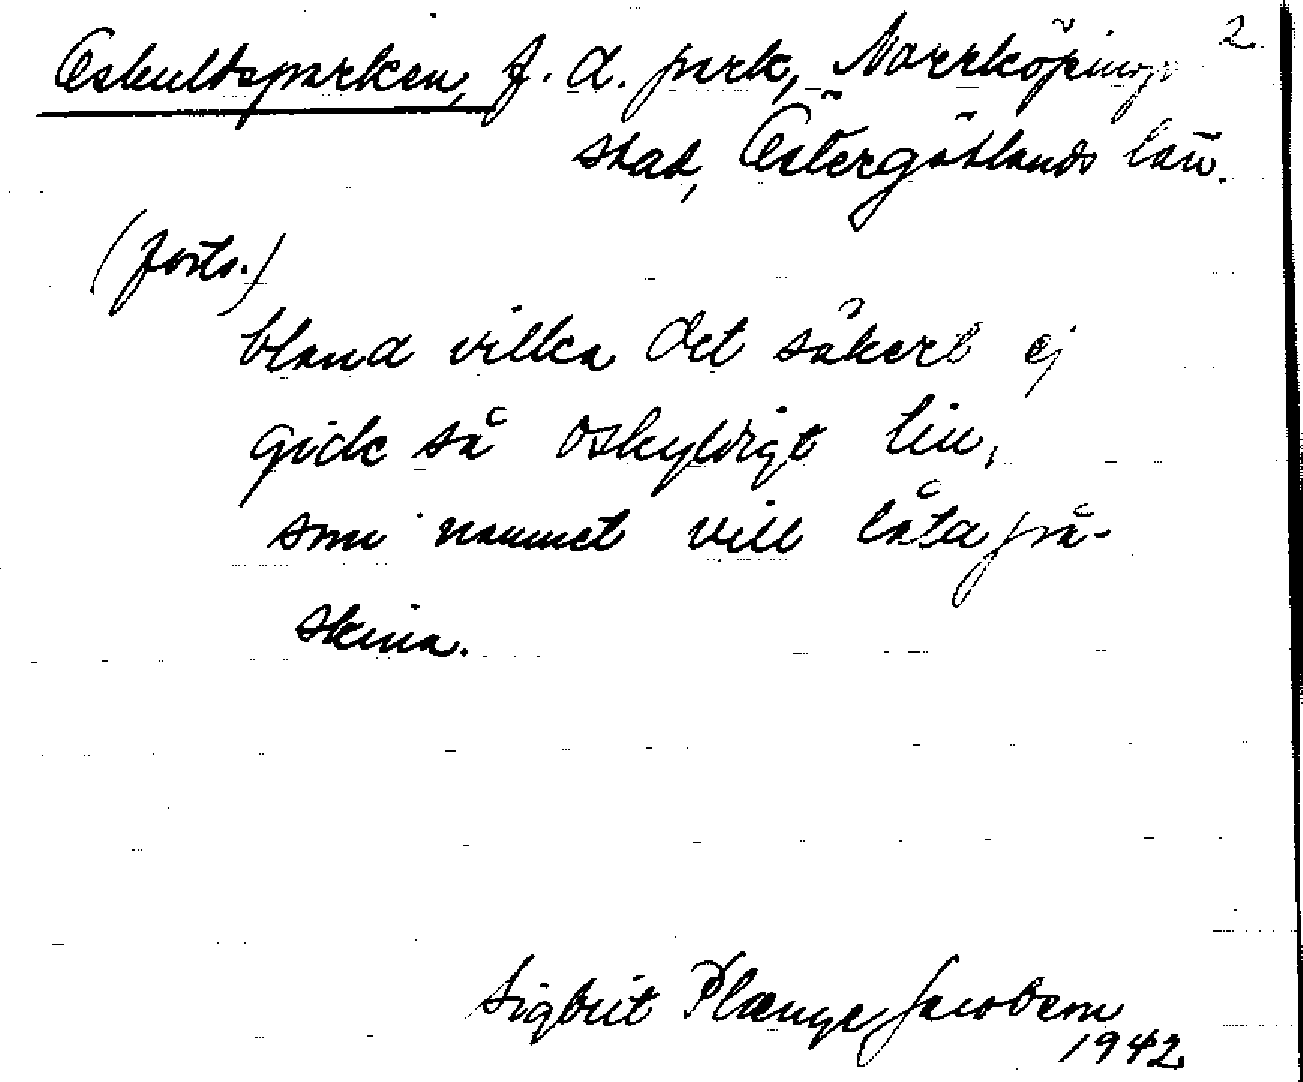 Oskuldsparken, f. d. park, Norrköpings 2.
stad, Östergötlands län.
(forts.)
bland vilka det säkert ej
gick så oskyldigt till,
som namnet vill låta på-
skina.
Sigbrit Plænge Jacobson
1942